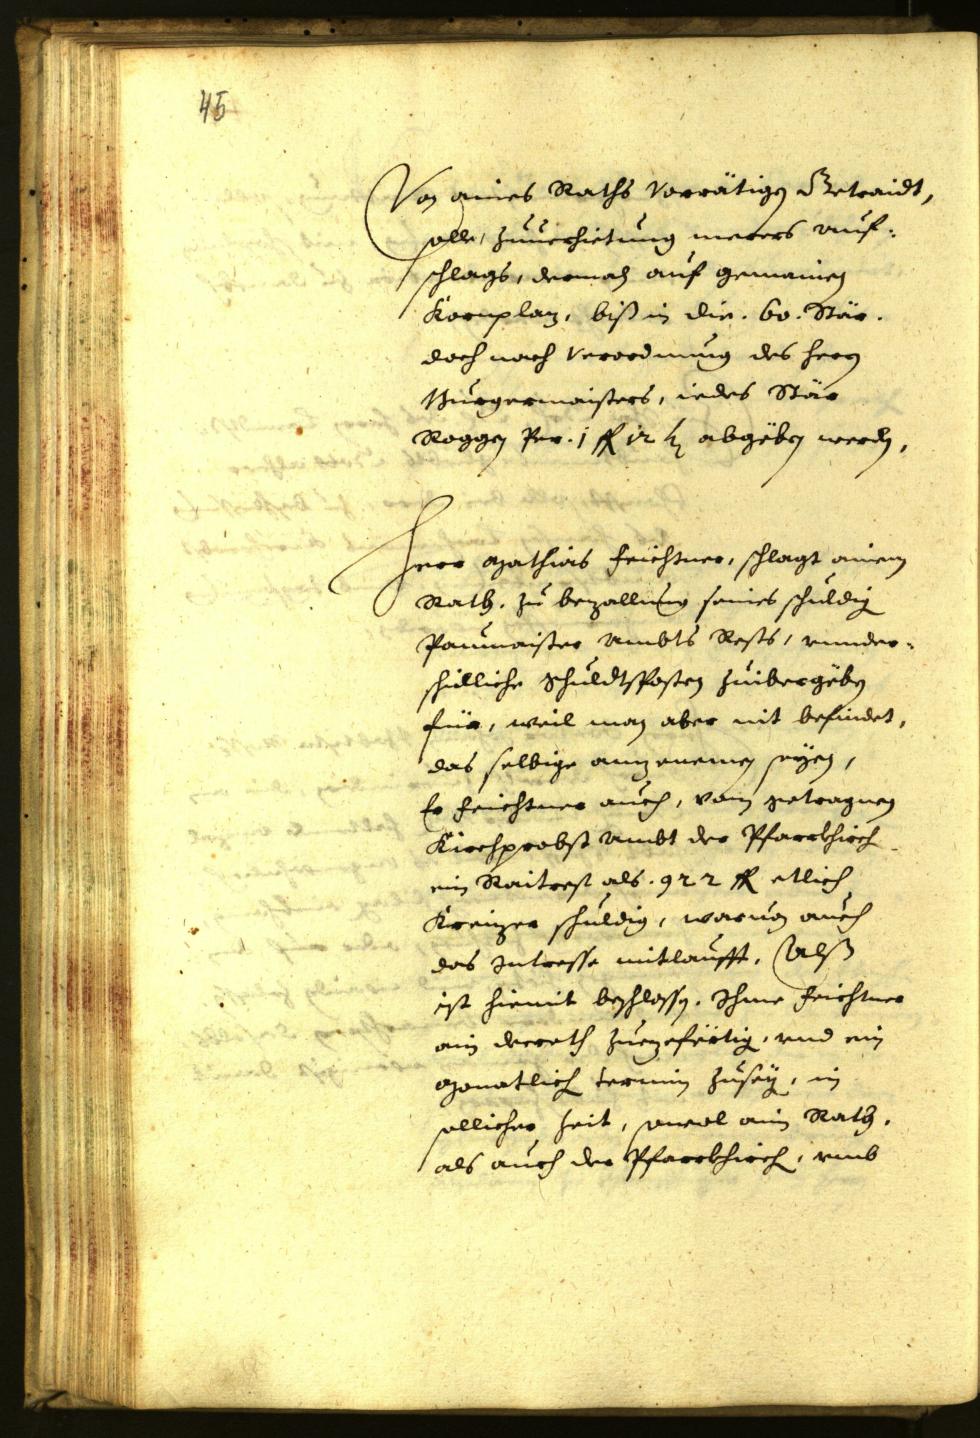 45
Von aines Raths Vorrätigen Getraidt,
solle, zuuerhietung merers auf-
schlags, dermaln auf gemainen
Kornplaz, biß in die . 60 . Stär .
doch nach Verordnung des herrn
Burgermaisters, iedes Stär
Roggen Per . 1 fl 12 kr abgeben werden,
Herr Mathias Feichtner, schlagt ainem
Rath, zu bezallung seines schuldig
Paumaister Ambts Rests, vnnder-
schidliche Schuldtsposten zuibergeben
für, weil man aber nit befindet,
das selbige anzenemen seyen,
Er Feichtner auch, vom getragnen
Kirchprobst Ambt der Pfarrkhirch
ein Raitrest als . 922 fl etlich
Kreizer schuldig, warvon auch
das Intresse mitlaufft, Alß
ist hiemit beschlossen, Ihme Feichtner
ain decreth zuezefertig, vnd ein
Monatlich termin zusez, in
sollicher Zeit, sowol ain Rath,
als auch der Pfarrkhirch, vmb